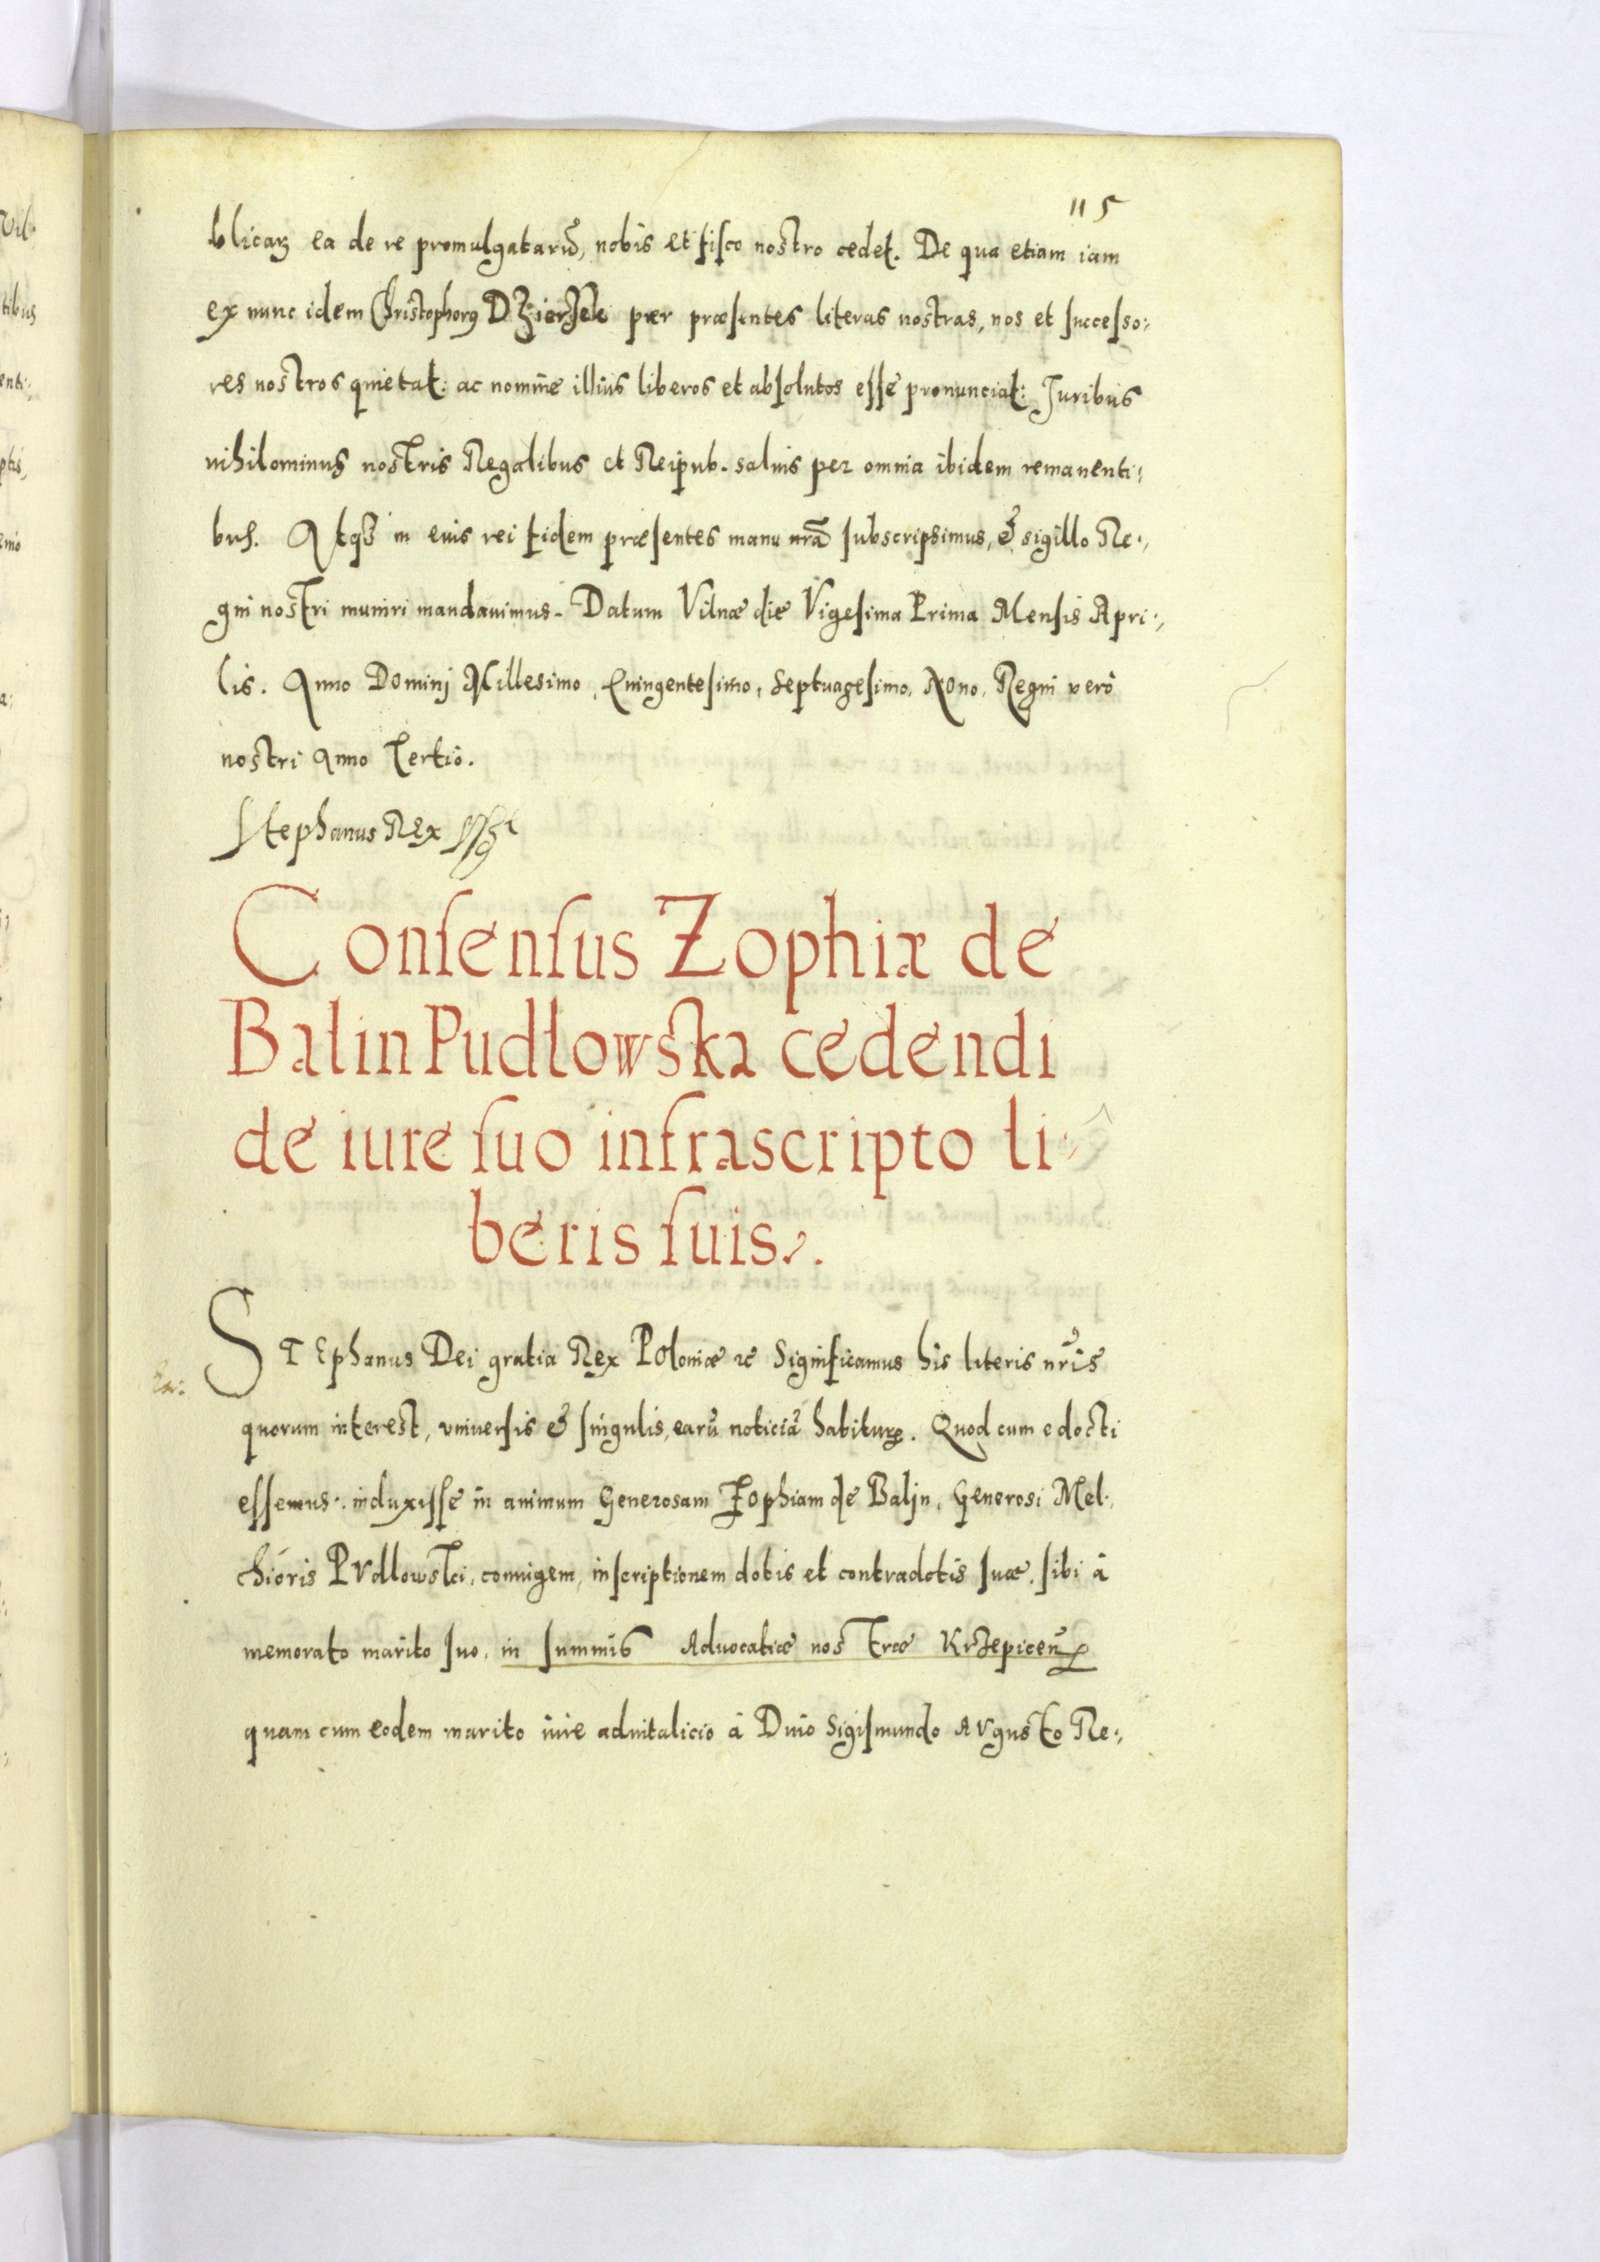 115
blicarꝫ ea de re promulgatarũ, nobis et fisco nostro cedet. De qua etiam iam
ex nunc idem Christophorꝰ Dzierzek per præsentes literas nostras, nos et successo:
res nostros quietat: ac nomine illius liberos et absolutos esse pronunciat: Juribus
nihilominus nostris Regalibus et Reipub. saluis per omnia ibidem remanenti:
bus. Atqꝫ in euis rei fidem præsentes manu nrã subscripsimus, & sigillo Re:
gni nostri muniri mandauimus. Datum Vilnæ die Vigesima Prima Mensis Apri:
lis. Anno Dominj Millesimo, Quingentesimo, Septuagesimo, Nono, Regni verò
nostri Anno Tertio.
Stephanus Rex
Consensus Zophiæ de
Balin Pudlowska cedendi
de iure suo infrascripto li:
beris suis.
STEphanus Dei gratia Rex Poloniæ ꝛc Significamus his literis nr̃is
quorum interest, vniuersis & singulis, earũ noticiã habiturꝝ. Quod cum edocti
essemus: induxisse in animum Generosam Zophiam de Balin, Generosi Mel:
chioris Pudlowski, coniugem, inscriptionem dotis et contradotis suæ, sibi à
memorato marito suo, in summis Aduocatiæ nostræ Krzepiceñ
quam cum eodem marito iure aduitalicio à Diuo Sigismundo Augusto Re: